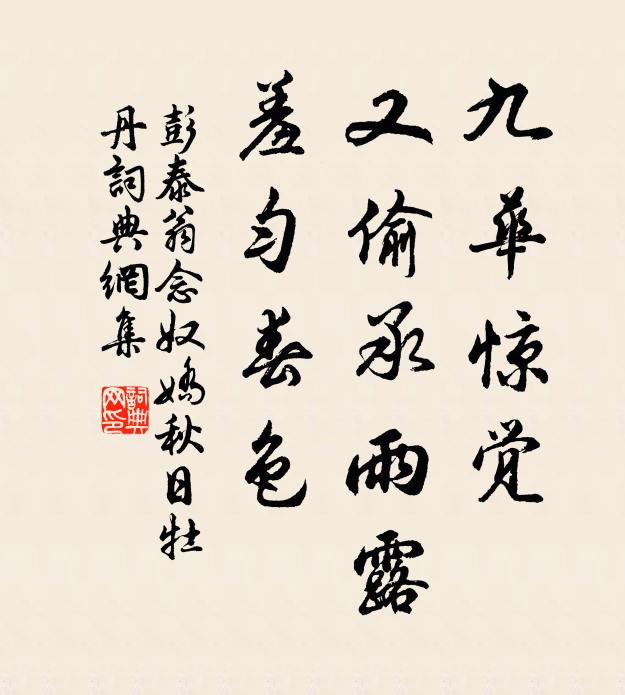 九華惊觉
又偷承雨露
羞匀春色
彭泰翁念奴嬌秋日牡
丹詞典網集
詞典
网印